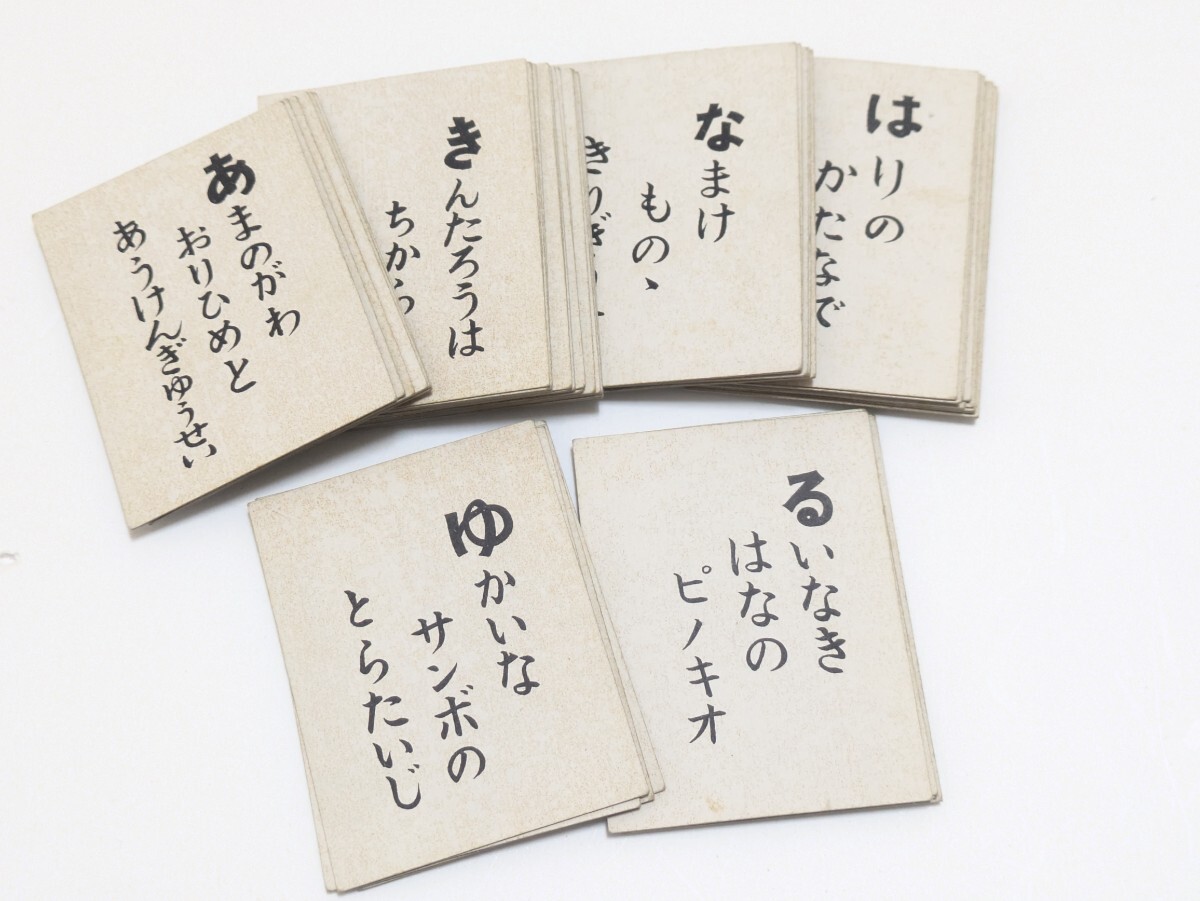 あまのがわ
おりひめと
あうけんぎゅうせい
きんたろうは
ちから
なまけ
もの、
きりぎり
はりの
かたなで
ゆかいな
サンボの
とらたいじ
るいなき
はなの
ピノキオ